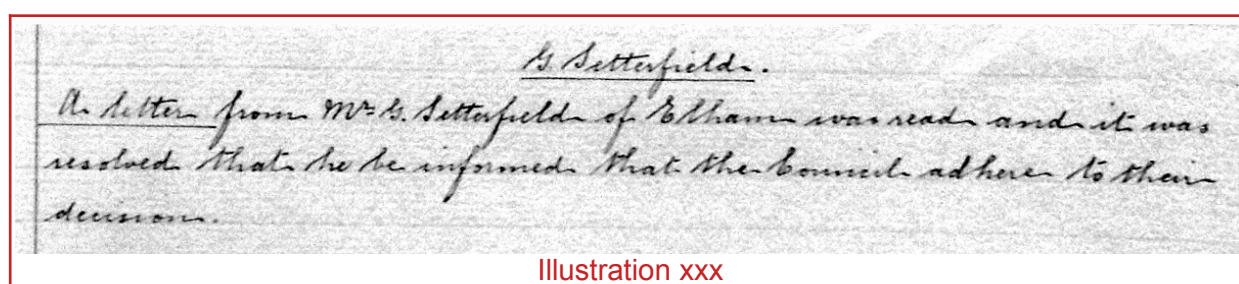 G Setterfield.
A letter from Mr G. Setterfield of Elham was read and it was
resolved that he be informed that the Council adhere to their
decision.
Illustration xxx